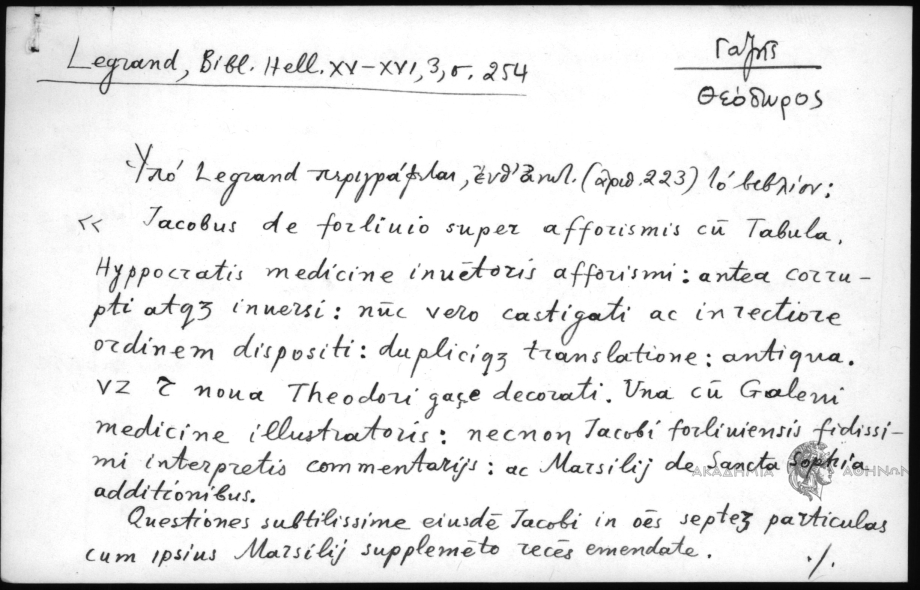 Legrand, Bibl. Hell. XV-XVI, 3, σ. 254
Γαζῆς
Θεόδωρος
Ὑπό Legrand περιγράφεται, ἔνθ' ἀνωτ. (ἀριθ. 223) τό βιβλίον:
<< Jacobus de forliuio super afforismis cū Tabula.
Hyppocratis medicine inuētoris afforismi: antea corru-
pti atqȝ inuersi: nūc vero castigati ac in rectiore
ordinem dispositi: dupliciqȝ translatione: antiqua.
vz ⁊̄ noua Theodori gaçe decorati. Una cū Galeni
medicine illustratoris: necnon Jacobi forliuiensis fidissi-
mi interpretis commentarijs: ac Marsilij de Sancta Sophia
additionibus.
ΑΚΑΔΗΜΙΑ ΑΘΗΝΩΝ
Questiones subtilissime eiusdē Jacobi in oēs septeȝ particulas
cum ipsius Marsilij supplemēto recēs emendate. ./.